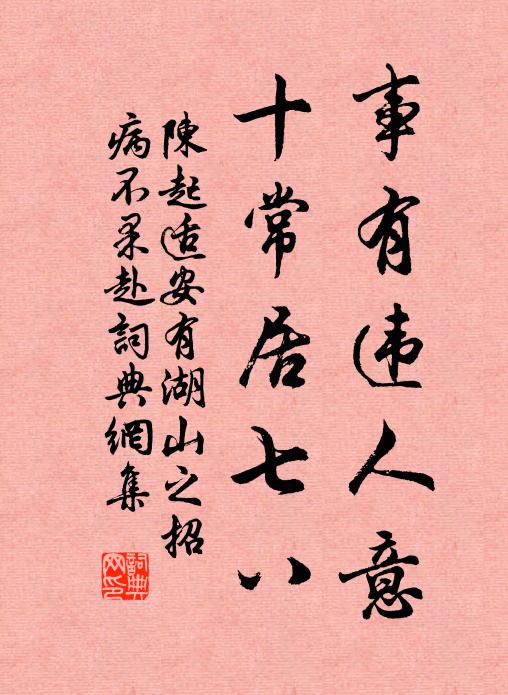 事有违人意
十常居七八
陳起适安有湖山之招
病不果赴詞典網集
詞典网印